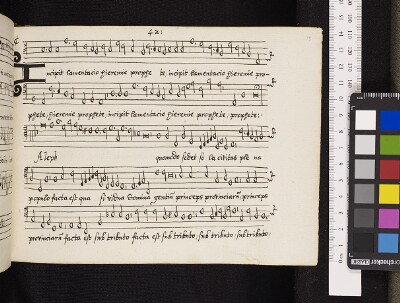 421
Incipit lamentacio Hieremie prophete, incipit lamentacio Hieremie pro-
phete, Hieremie prophete, incipit lamentacio Hieremie prophete, prophete:
Aleph quomodo sedet so la civitas ple na
populo facta est qua si vidua domina gentiū princeps provinciarū princeps
provinciarū facta est sub tributo facta est sub tributo, sub tributo, sub tributo